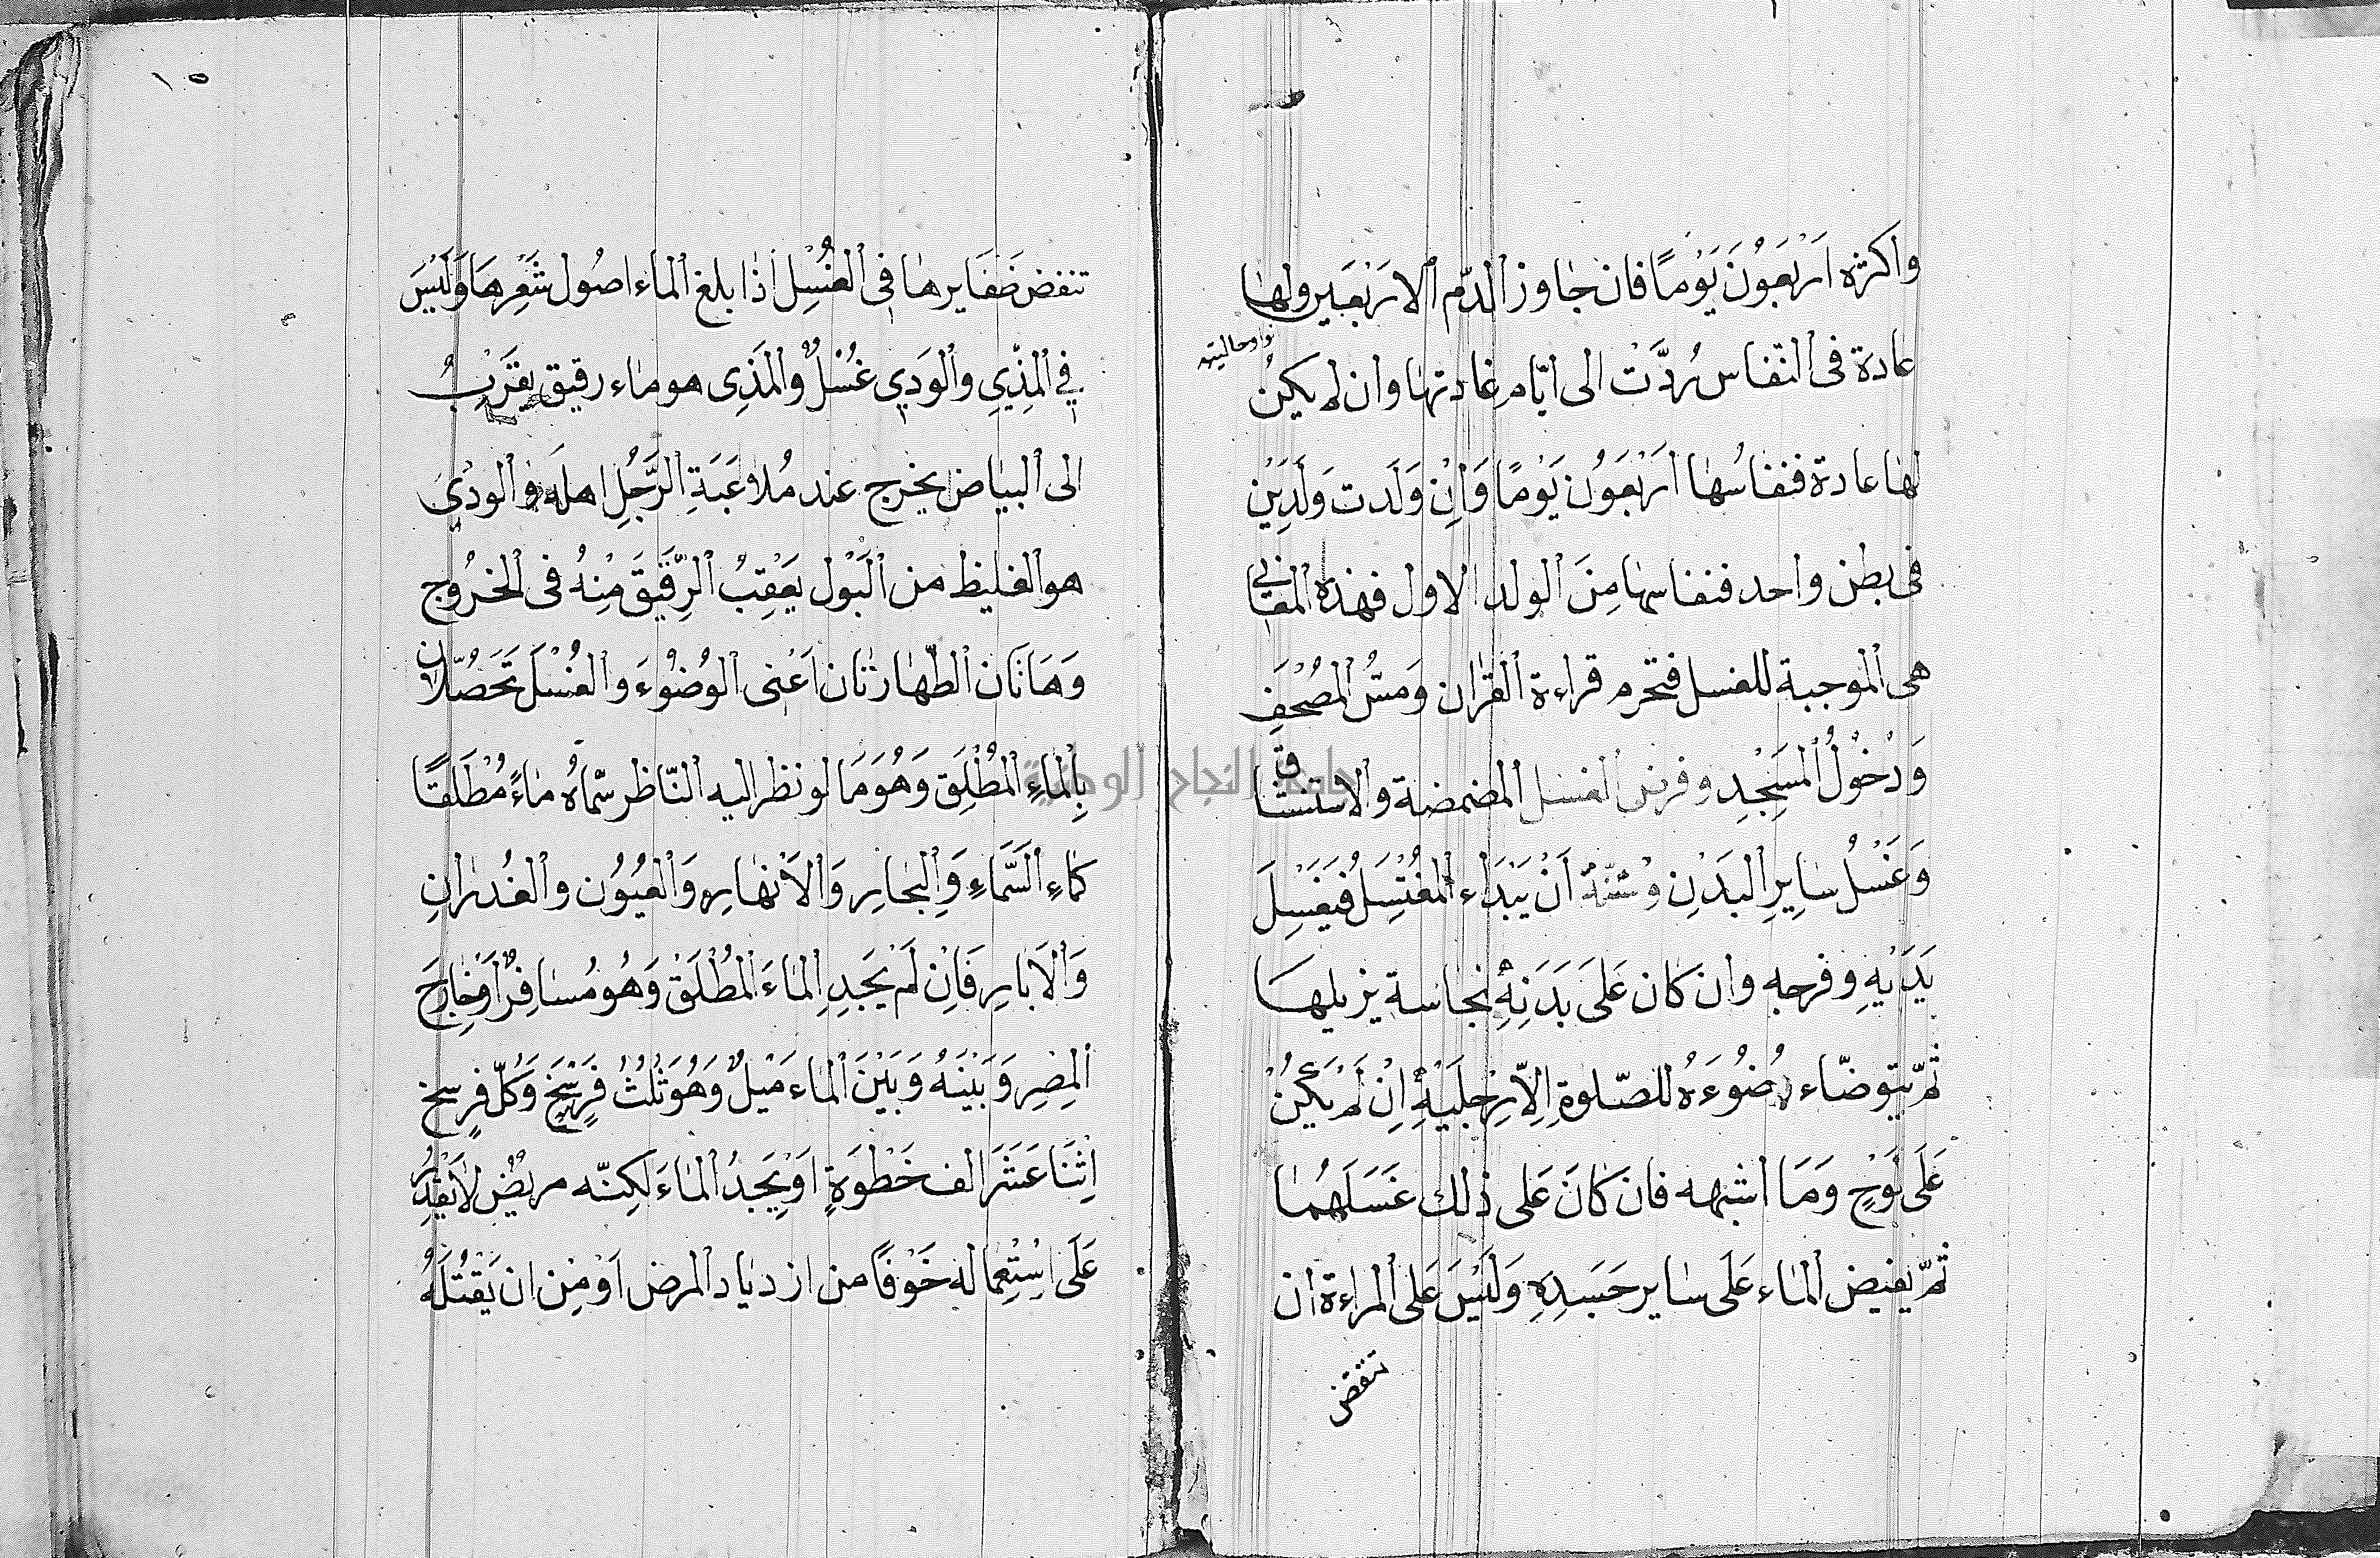 واكثره اَرْبَعُونَ يَوْمًا فان جاوز الدّم الاربَعَين ولها
واو حاليه
عادة فى النّفاس رُدَّتْ الى ايّام عادتها وان لم يكنْ
لها عادة فنفاسُها اَرْبَعَوُن يَوْمًا وَاِنْ وَلَدت وَلَدَيْن
فى بطن واحد فنفاسها مِنَ الولد الاول فهذه المعانى
هى الموجبة للغسل فتحرم قراءة القرٰان وَمسّ المُصْحَفِ
وَدُخُولُ المَسْجِدِ وفرض الغسل المضمضة والاستنشاق
وَغَسْلُ سٰايِرِ البَدَنِ وسُنّتهُ اَنْ يَبْدَاء المُغْتَسِلُ فَيَغْسِلَ
يَدَيْهِ وفرجه وان كان عَلىَ بَدَنِهِ نجاسة يزيلها
ثمّ يتوضّاء وُضُوُءَهُ للصّلوة اِلاّ رِجْلَيْهِ اِنْ لَمْ يَكُنْ
عَلَى لَوْحٍ وَمَا اشبهه فان كَانَ عَلى ذٰلك غَسَلَهُمٰا
ثمّ يفيض المٰاء عَلَى سٰاير جَسَدِهِ وَلَيْسَ عَلى المراءة ان
تنقض
١٥
تنقض ضَفَايرهٰا فى الغُسْلِ اذٰا بلغ المٰاء اصُول شَعْرِهَا وَلَيْسَ
فِي المذّيِ والوَديِ غُسْلٌ والمَذِى هو مٰاء رقيق يَقْرَبُ
الى البياض يخرج عند مُلاَعَبَةِ الرَّجُلِ اهله والوديُ
هو الغليظ من البَوْل يَعْقِبُ الرّقَيقَ مِنْهُ فى الخرُوج
وَهَاتَان الطّهٰارتٰان اَعْنى الوُضُوُءَ والغُسْلَ تَحَصُلاٰن
بِالْمٰاءِ المُطْلَقِ وَهُوَ مَا لو نظر اليه النّاظر سمّاهُ مٰاءً مُطْلَقًا
كَمٰاءِ السَّمَاءِ وَالبحٰارِ وَالاَنْهٰارِ وَالعيُوُن والغُدرٰانِ
وَالاَبٰارِ فَاِنْ لَمْ يَجَدِ المٰاءَ المُطْلَقْ وَهُو مُسٰافِرٌ اَوْ خٰارِجَ
المِصْرِ وَبَيْنَهُ وَبَيْنَ المٰاء مَيْلٌ وَهُوَ ثُلُثُ فَرْسَخٍ وَكُلّ فرسخ
اِثْنَا عَشَرَ الف خَطْوَةٍ اَوْ يَجِدُ المٰاءَ لكِنّه مريضٌ لاٰ يَقْدِرُ
عَلَى اِسْتِعْمٰاله خَوْفًا من ازديٰاد المرض اَوْ مِنْ ان يَقْتُلَهُ